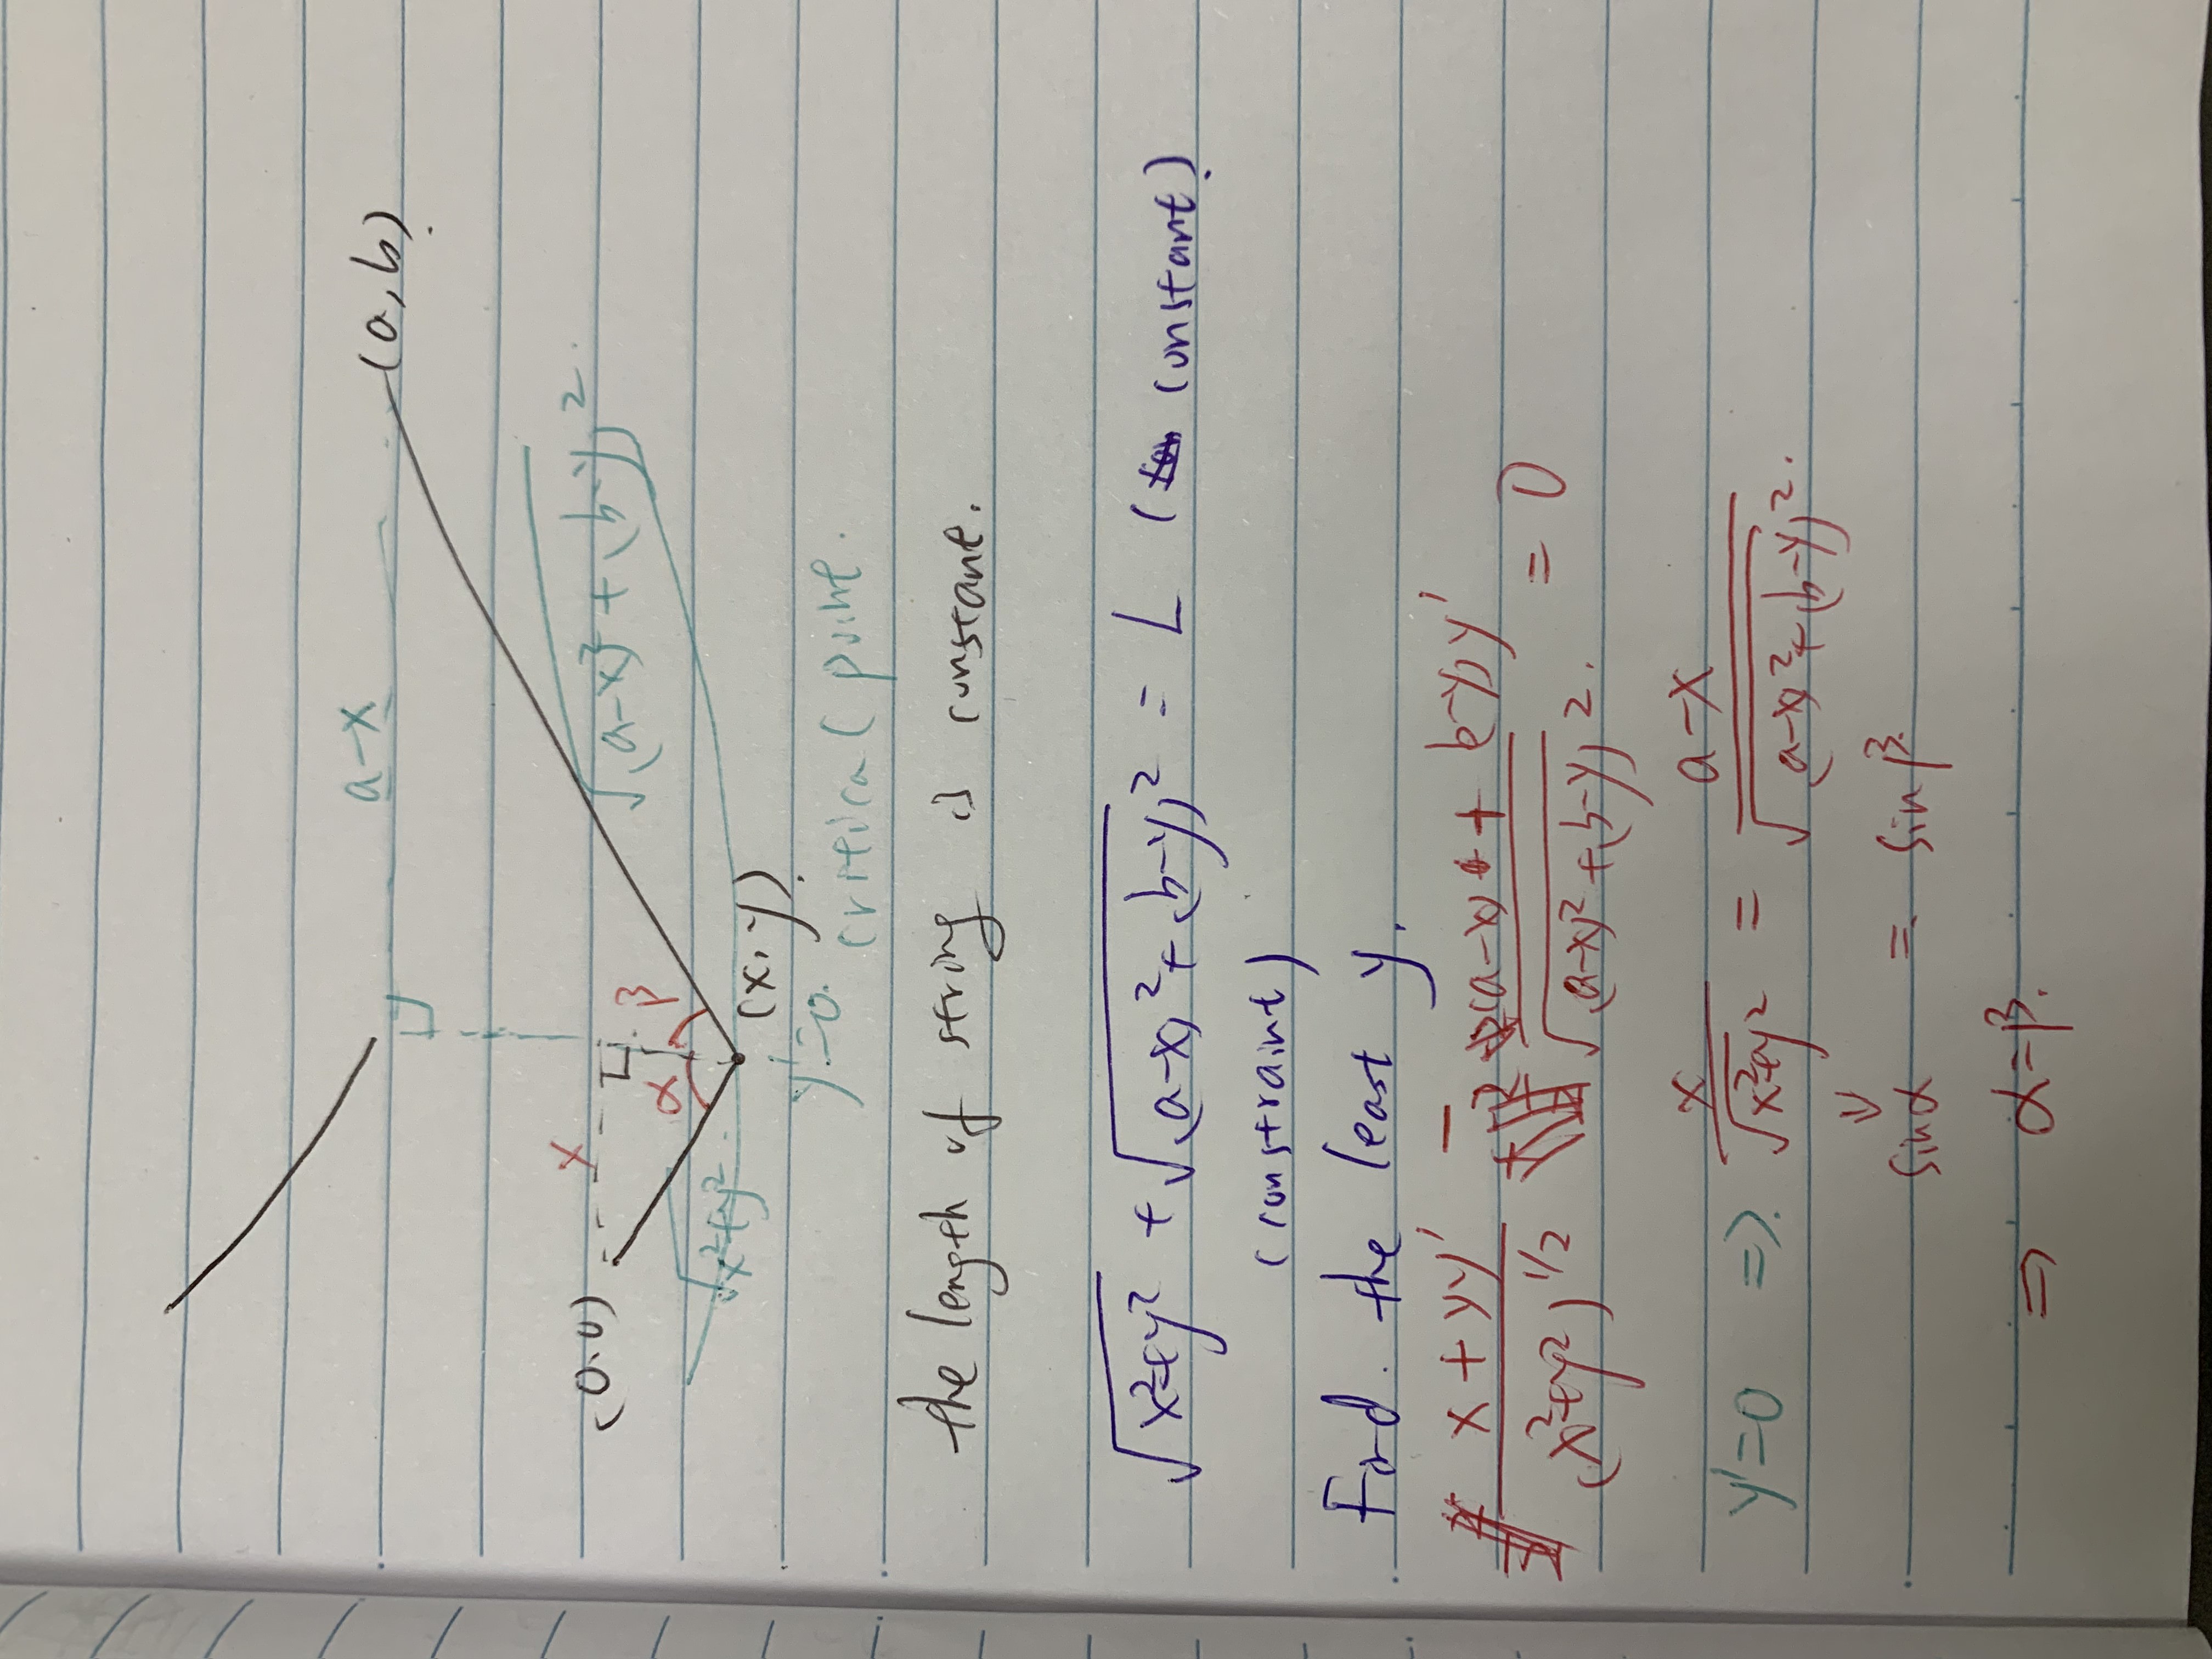 a-x
(a, b)
(0.0)
x
√(a-x)²+(b-y)²
α
β
√x²+y²
(x, y)
y'=0.
critical point.
the length of string is constant.
√x²+y² + √(a-x)²+(b-y)² = L ( constant)
(constraint)
Find. the least y.
x + yy' / (x²+y²)^1/2 - (a-x) + (b-y)y' / √(a-x)²+(b-y)². = 0
y'=0 => x / √x²+y² = a-x / √(a-x)²+(b-y)².
⇓
sinα = sinβ
=> α=β.